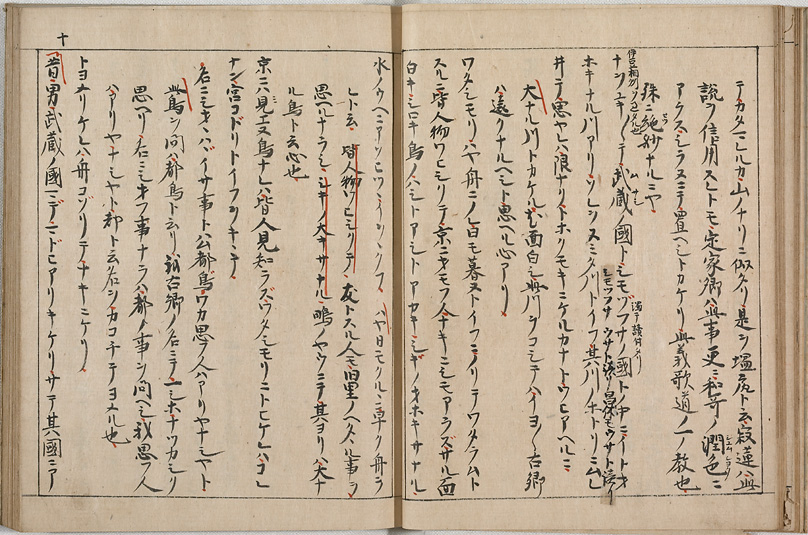 テカタマヒルカ山ノナリニ似タリ是ヲ塩尻ト云寂蓮ハ此
説ヲ信用スレトモ定家卿ハ無事更ニ和哥ノ潤色ニ
アラスシラヌニテ置ヘシトカケリ與義歌道ノ一ノ教也
殊ニ絶妙ナルニヤ
ナヲユキ〳〵テ武蔵ノ國トシモツフサノ國トノ中ニイトオ
ホキナル川アリソレヲスミタ川トイフ其川ノホトリニムレ
井テ思ヤレハ限ナクトホクモキニケルカナトワヒアヘルニ
大ナル川トカケル尤面白シ此川ヲコシテハイヨ〳〵古郷
ハ遠クナルヘキト思ヘル心アリ
ワタシモリハヤ舟ニノレ日モ暮ヌトイフニノリテワタラムト
スルニ皆人物ワヒシクテ京ニ思フ人ナキニシモアラズサル面
白キシロキ鳥ノハシトアシトアカキシギノオホキサナル
十
水ノウヘニアソヒツヽイヲヽクフ ハヤ日モクルヽニ早ク舟ニノ
レト云 皆人物ワヒシクテ 友トスル人モ旧里ノヘタヽル事ヲ
思ヘルナラシ シキノ大キサナル 鴫ノヤウニテ其ヨリハ大ナ
ル鳥ト云心也
京ニハ見エヌ鳥ナレハ皆人見知ラズワタシモリニトヒケレハコレ
ナン宮コドリトイフヲキヽテ
名ニシオハヽイサ事トハム都鳥ワカ思フ人ハアリヤナシヤト
此鳥ヲ問ハ都鳥ト云リ故古郷ノ名ニテ一シホナツカシク
思ヘリ名ニシオフ事ナラハ都ノ事ヲ問ヘシ我思フ人
ハアリヤナシヤト都ト云名ヲカコチテヨメル也
トヨメリケレハ舟コゾリテナキニケリ
昔男武蔵ノ國マデマドヒアリキケリサテ其國ニア